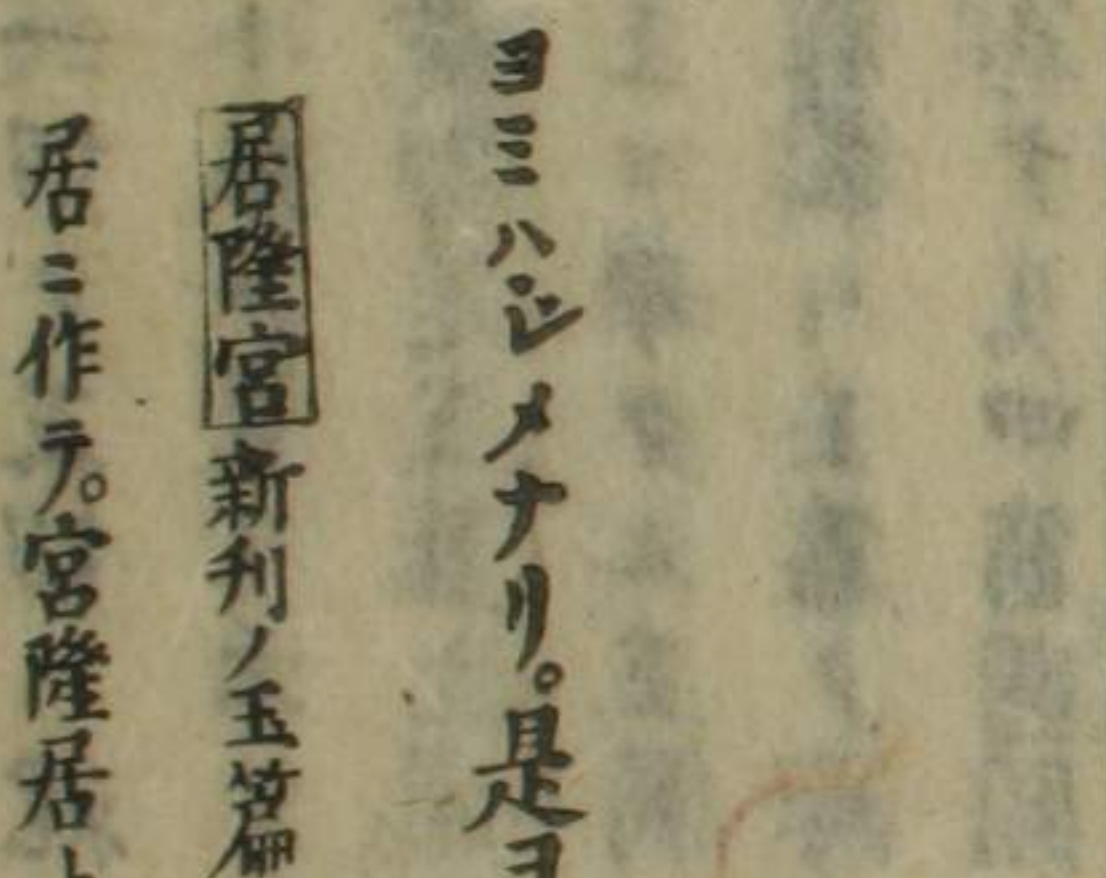 ヨミハジメナリ。是ヨ
居隆宮新刋ノ玉篇
居ニ作テ。宮隆居ト